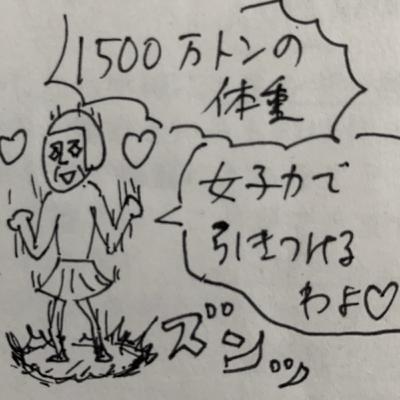 1500万トンの
体重
女子力で
引きつける
わよ♡
ズンッ